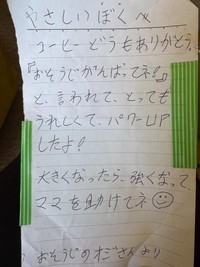 やさしいぼくへ
コーヒーどうもありがとう。
『おそうじがんばってネ!』
と、言われて、とっても
うれしくて、パワーUP
したよ!
大きくなったら、強くなって、
ママを助けてネ☺
おそうじのオジさんより